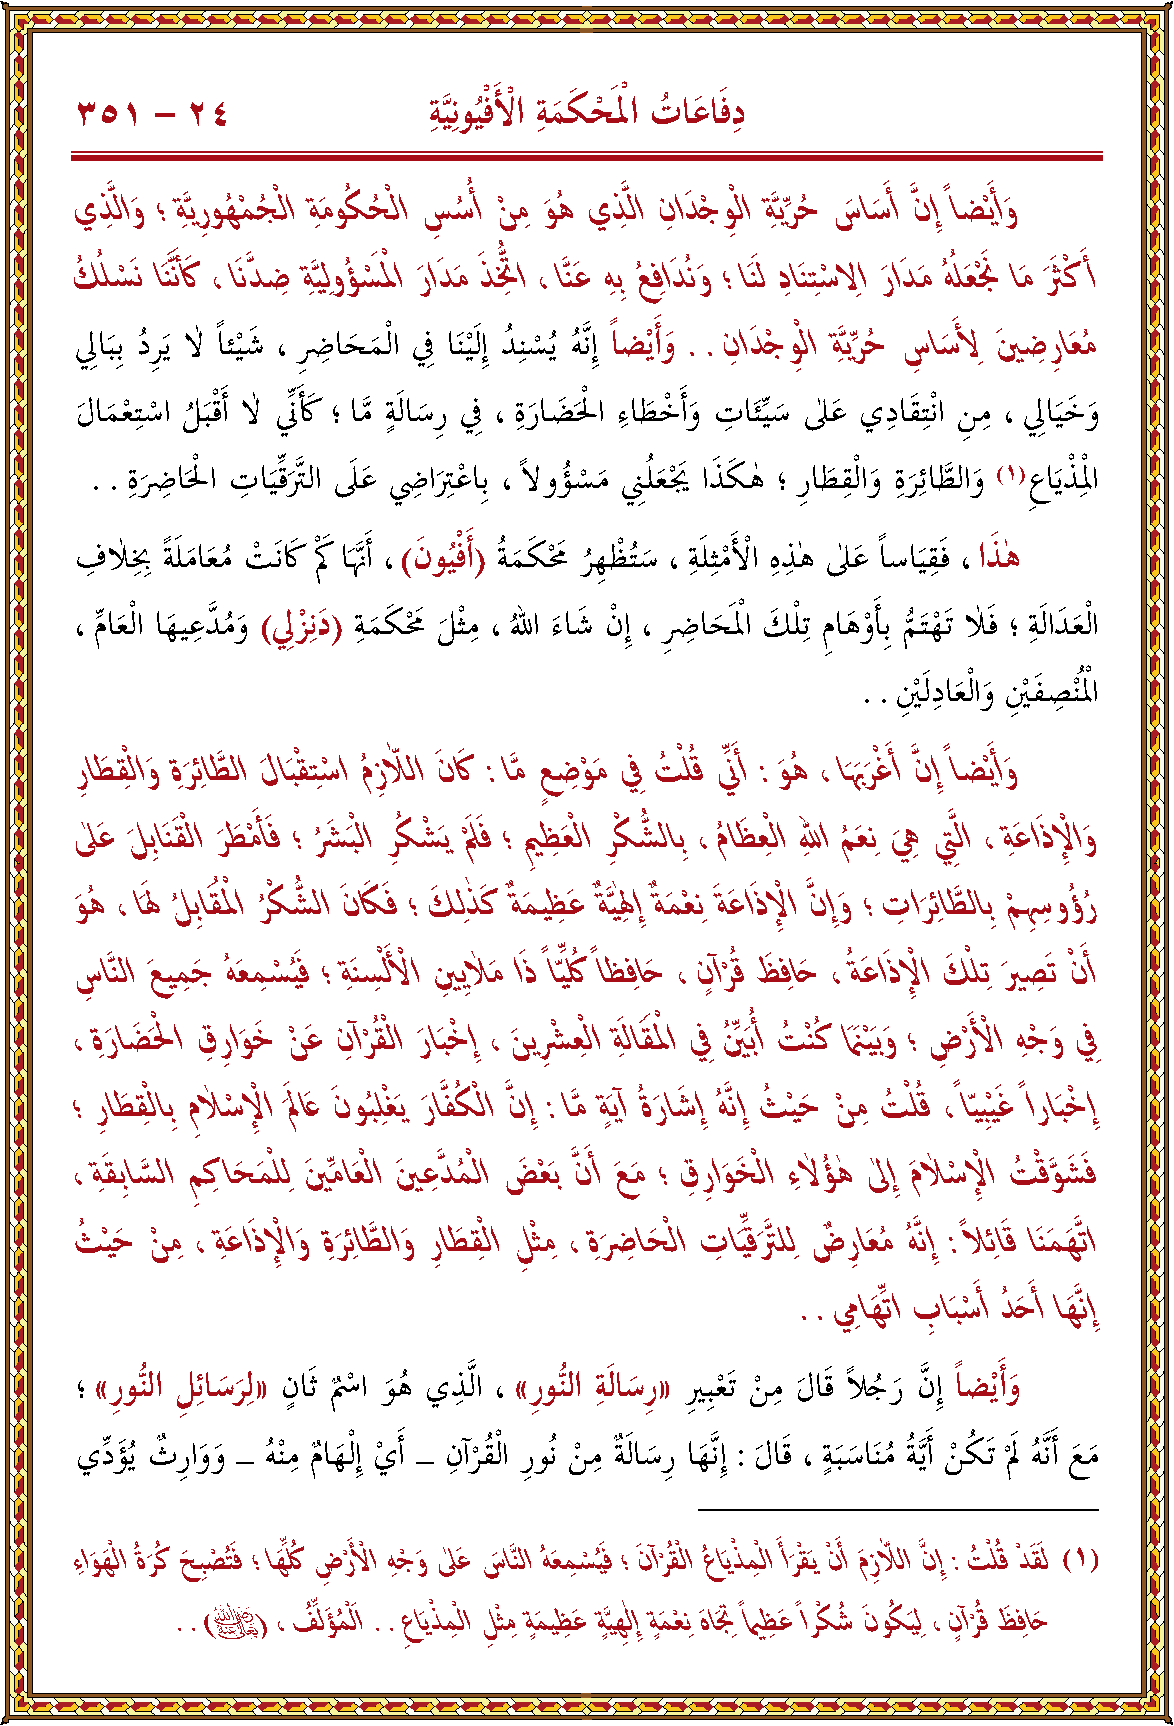 دِفَاعَاتُ الْمَحْكَمَةِ الْأَفْيُونِيَّةِ ٢٤ – ٣٥١
وَأَيْضاً إِنَّ أَسَاسَ حُرِّيَّةِ الْوِجْدَانِ الَّذِي هُوَ مِنْ أُسُسِ الْحُكُومَةِ الْجُمْهُورِيَّةِ ؛ وَالَّذِي
أَكْثَرَ مَا نَجْعَلُهُ مَدَارَ الِاسْتِنَادِ لَنَا ؛ وَنُدَافِعُ بِهِ عَنَّا ، اتُّخِذَ مَدَارَ الْمَسْؤُولِيَّةِ ضِدَّنَا ، كَأَنَّنَا نَسْلُكُ
مُعَارِضِينَ لِأَسَاسِ حُرِّيَّةِ الْوِجْدَانِ . . وَأَيْضاً إِنَّهُ يُسْنِدُ إِلَيْنَا فِي الْمَحَاضِرِ ، شَيْئاً لَا يَرِدُ بِبَالِي
وَخَيَالِي ، مِنِ انْتِقَادِي عَلَى سَيِّئَاتِ وَأَخْطَاءِ الْحَضَارَةِ ، فِي رِسَالَةٍ مَّا ؛ كَأَنِّي لَا أَقْبَلُ اسْتِعْمَالَ
الْمِذْيَاعِ (١) وَالطَّائِرَةِ وَالْقِطَارِ ؛ هٰكَذَا يَجْعَلُنِي مَسْؤُولاً ، بِاعْتِرَاضِي عَلَى التَّرَقِّيَاتِ الْحَاضِرَةِ . .
هٰذَا ، فَقِيَاساً عَلَى هٰذِهِ الْأَمْثِلَةِ ، سَتُظْهِرُ مَحْكَمَةُ (أَفْيُونَ) ، أَنَّهَا كَمْ كَانَتْ مُعَامَلَةً بِخِلَافِ
الْعَدَالَةِ ؛ فَلَا تَهْتَمُّ بِأَوْهَامِ تِلْكَ الْمَحَاضِرِ ، إِنْ شَاءَ اللهُ ، مِثْلَ مَحْكَمَةِ (دَنِزْلِي) وَمُدَّعِيهَا الْعَامِّ ،
الْمُنْصِفَيْنِ وَالْعَادِلَيْنِ . .
وَأَيْضاً إِنَّ أَغْرَبَهَا ، هُوَ : أَنِّي قُلْتُ فِي مَوْضِعٍ مَّا : كَانَ اللَّازِمُ اسْتِقْبَالَ الطَّائِرَةِ وَالْقِطَارِ
وَالْإِذَاعَةِ ، الَّتِي هِيَ نِعَمُ اللهِ الْعِظَامُ ، بِالشُّكْرِ الْعَظِيمِ ؛ فَلَمْ يَشْكُرِ الْبَشَرُ ؛ فَأَمْطَرَ الْقَنَابِلَ عَلَى
رُؤُوسِهِمْ بِالطَّائِرَاتِ ؛ وَإِنَّ الْإِذَاعَةَ نِعْمَةٌ إِلٰهِيَّةٌ عَظِيمَةٌ كَذٰلِكَ ؛ فَكَانَ الشُّكْرُ الْمُقَابِلُ لَهَا ، هُوَ
أَنْ تَصِيرَ تِلْكَ الْإِذَاعَةُ ، حَافِظَ قُرْآنٍ ، حَافِظاً كُلِّيّاً ذَا مَلَايِينِ الْأَلْسِنَةِ ؛ فَيُسْمِعَهُ جَمِيعَ النَّاسِ
فِي وَجْهِ الْأَرْضِ ؛ وَبَيْنَمَا كُنْتُ أُبَيِّنُ فِي الْمَقَالَةِ الْعِشْرِينَ ، إِخْبَارَ الْقُرْآنِ عَنْ خَوَارِقِ الْحَضَارَةِ ،
إِخْبَاراً غَيْبِيّاً ، قُلْتُ مِنْ حَيْثُ إِنَّهُ إِشَارَةُ آيَةٍ مَّا : إِنَّ الْكُفَّارَ يَغْلِبُونَ عَالَمَ الْإِسْلَامِ بِالْقِطَارِ ؛
فَشَوَّقْتُ الْإِسْلَامَ إِلَى هٰؤُلَاءِ الْخَوَارِقِ ؛ مَعَ أَنَّ بَعْضَ الْمُدَّعِينَ الْعَامِّينَ لِلْمَحَاكِمِ السَّابِقَةِ ،
اتَّهَمَنَا قَائِلاً : إِنَّهُ مُعَارِضٌ لِلتَّرَقِّيَاتِ الْحَاضِرَةِ ، مِثْلِ الْقِطَارِ وَالطَّائِرَةِ وَالْإِذَاعَةِ ، مِنْ حَيْثُ
إِنَّهَا أَحَدُ أَسْبَابِ اتِّهَامِي . .
وَأَيْضاً إِنَّ رَجُلاً قَالَ مِنْ تَعْبِيرِ «رِسَالَةِ النُّورِ» ، الَّذِي هُوَ اسْمٌ ثَانٍ «لِرَسَائِلِ النُّورِ» ؛
مَعَ أَنَّهُ لَمْ تَكُنْ أَيَّةُ مُنَاسَبَةٍ ، قَالَ : إِنَّهَا رِسَالَةٌ مِنْ نُورِ الْقُرْآنِ – أَيْ إِلْهَامٌ مِنْهُ – وَوَارِثٌ يُؤَدِّي
(١) لَقَدْ قُلْتُ : إِنَّ اللَّازِمَ أَنْ يَقْرَأَ الْمِذْيَاعُ الْقُرْآنَ ؛ فَيُسْمِعَهُ النَّاسَ عَلَى وَجْهِ الْأَرْضِ كُلِّهَا ؛ فَتُصْبِحَ كُرَةُ الْهَوَاءِ
حَافِظَ قُرْآنٍ ، لِيَكُونَ شُكْراً عَظِيماً تِجَاهَ نِعْمَةٍ إِلٰهِيَّةٍ عَظِيمَةٍ مِثْلِ الْمِذْيَاعِ . . الْمُؤَلِّفُ ، (رضي الله عنه) . .